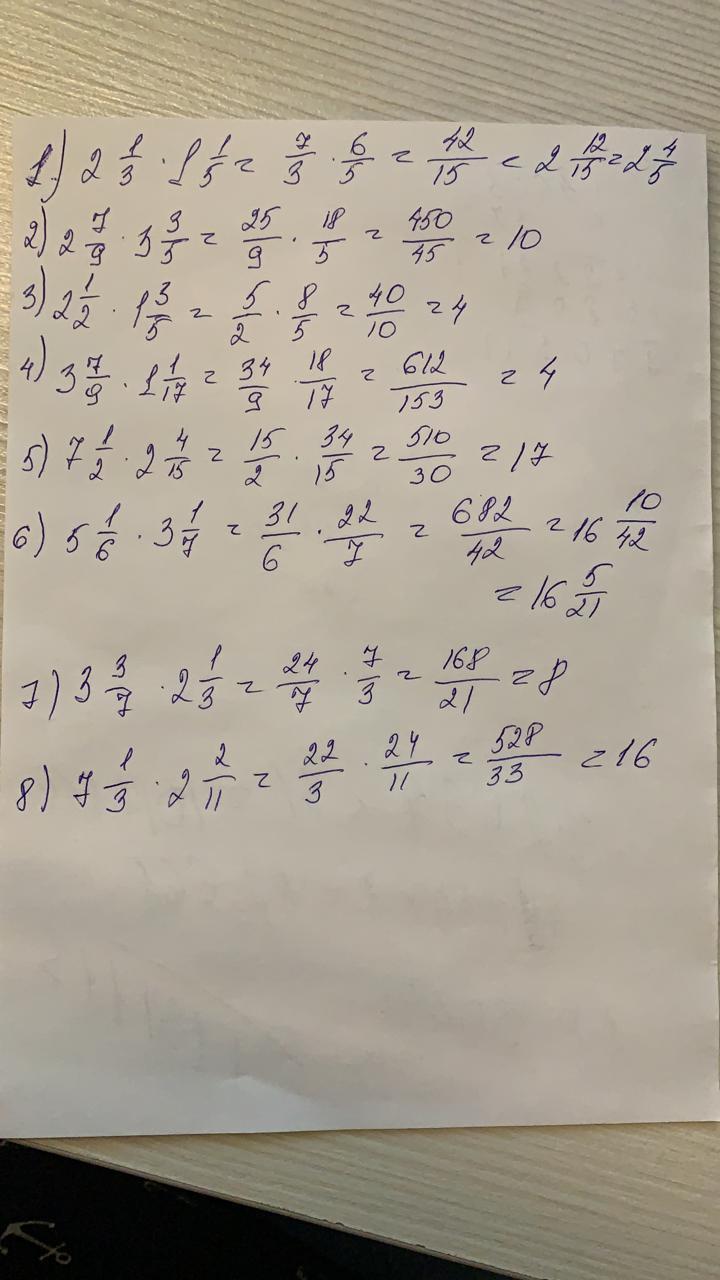 1) 2 1/3 · 1 1/5 = 7/3 · 6/5 = 42/15 = 2 12/15 = 2 4/5
2) 2 7/9 · 3 3/5 = 25/9 · 18/5 = 450/45 = 10
3) 2 1/2 · 1 3/5 = 5/2 · 8/5 = 40/10 = 4
4) 3 7/9 · 1 1/17 = 34/9 · 18/17 = 612/153 = 4
5) 7 1/2 · 2 4/15 = 15/2 · 34/15 = 510/30 = 17
6) 5 1/6 · 3 1/7 = 31/6 · 22/7 = 682/42 = 16 10/42
= 16 5/21
7) 3 3/7 · 2 1/3 = 24/7 · 7/3 = 168/21 = 8
8) 7 1/3 · 2 2/11 = 22/3 · 24/11 = 528/33 = 16